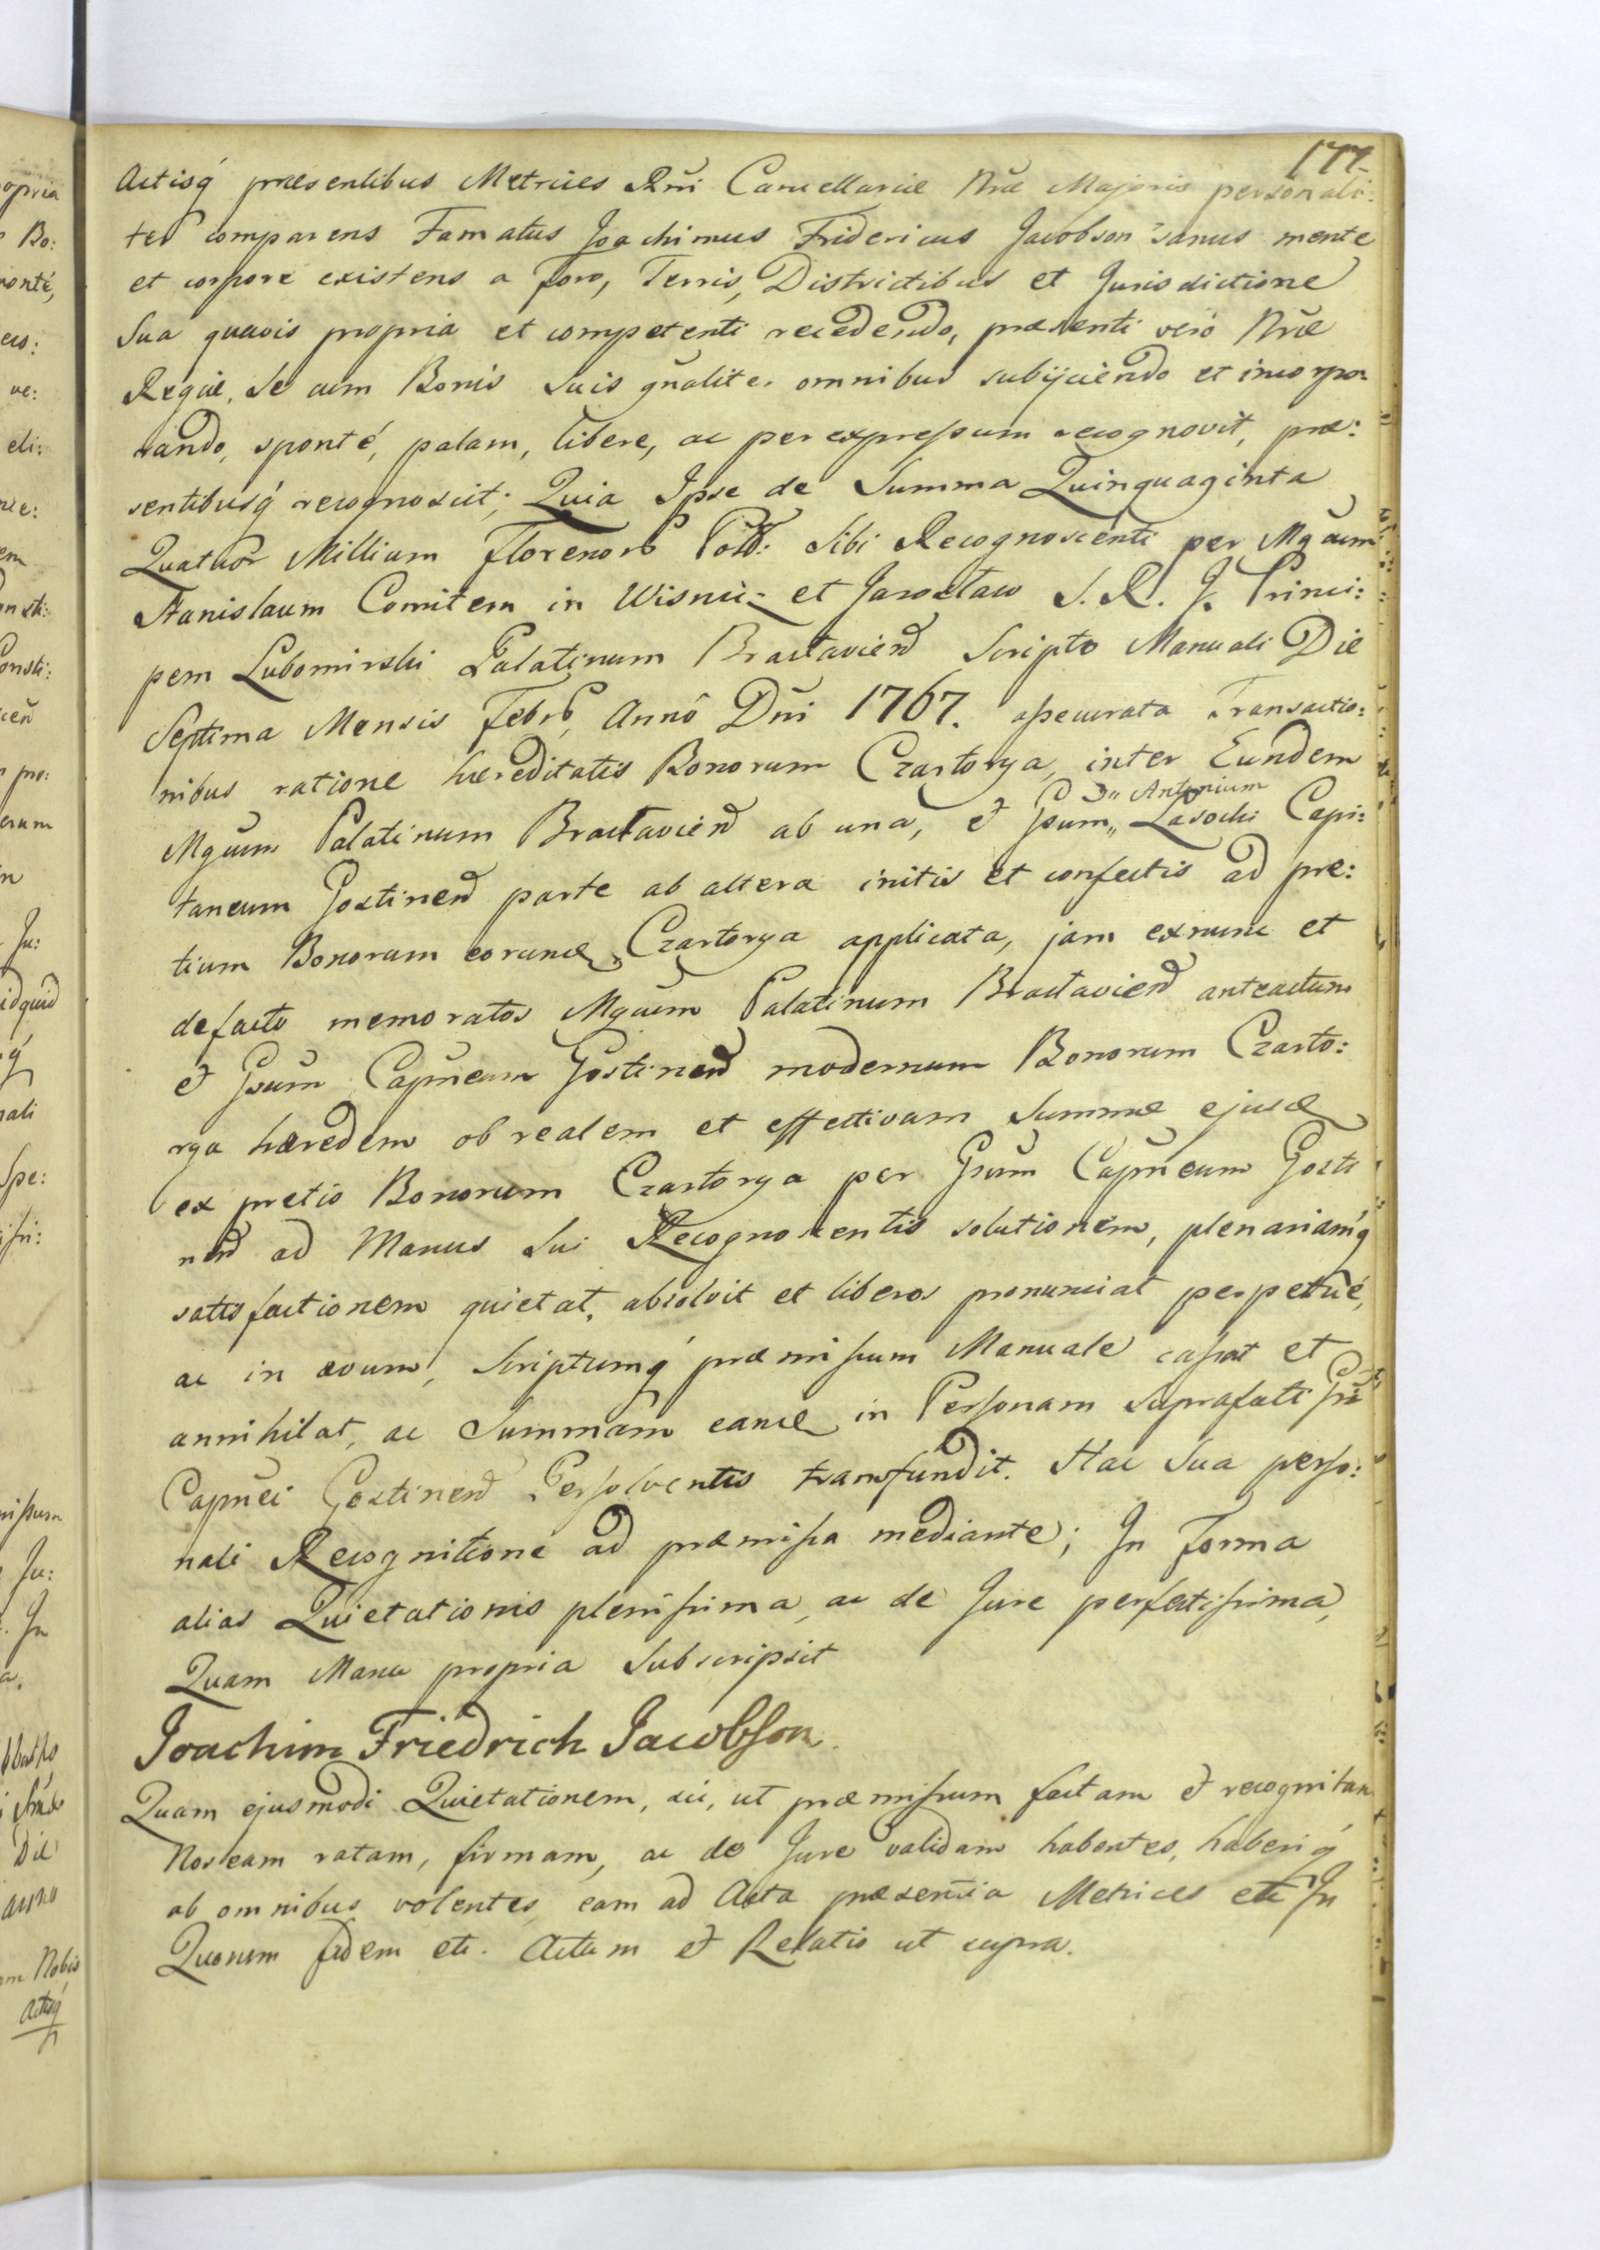 177.
Actisq́ praesentibus Metrices Rñi Cancellariae Nrae Majoris personali:
ter comparens Famatus Joachimus Fridericus Jacobson sanus mente
et corpore existens a Foro, Terris, Districtibus et Jurisdictione
Sua quavis propria et competenti recedendo, praesenti verò Nrae
Regiae, se cum Bonis suis gñaliter omnibus subijciendo et incorpo-
rando, sponté, palam, libere, ac per expressum recognovit, prae:
sentibusq́ recognoscit; Quia Ipse de Summa Quinquaginta
Quatuor Millium Florenor Poll: Sibi Recognoscenti per Mgcum
Stanislaum Comitem in Wisnicz et Jarosław S. R. J. Princi:
pem Lubomirski Palatinum Bractaviend Scripto Manuali Die
Septima Mensis Febr, Annô Dñi 1767. assecurata Transactio:
nibus ratione haereditatis Bonorum Czartorya, inter Eundem
Mgcum Palatinum Bractaviend ab una, et Gsum „ Lasocki Capi:
„ Antonium
taneum Gostinend parte ab altera initis et confectis ad pre:
tium Bonorum eorund Czartorya applicata, jam exnunc et
defacto memoratos Mgcum Palatinum Bractaviend anteactum
et Gsum Capneum Gostinend modernum Bonorum Czarto:
rya haeredem ob realem et effectivam Summae ejusd
ex pretio Bonorum Czartorya per Gsum Capneum Gosti
nend ad Manus Sui Recognoscentis solutionem, plenariamq́
satisfactionem quietat, absolvit et liberos pronunciat perpetué,
ac in aevum, Scriptumq́ praemissum Manuale cassat et
annihilat, ac Summam eand in Personam Suprafati Gsi
Capnei Gostinend Persolventis transfundit. Hac Sua perso:
nali Recognitione ad praemissa mediante; In Forma
alias Quietationis plenissima, ac de Jure perfectissima,
Quam Manu propria Subscripsit
Joachim Friedrich Jacobson.
Quam ejusmodi Quietationem, sic, ut praemissum factam et recognitam
Nos eam ratam, firmam, ac de Jure validam habentes, haberiq́
ab omnibus volentes, eam ad Acta praesentia Metrices etc In
Quorum fidem etc. Actum et Relatio ut supra.